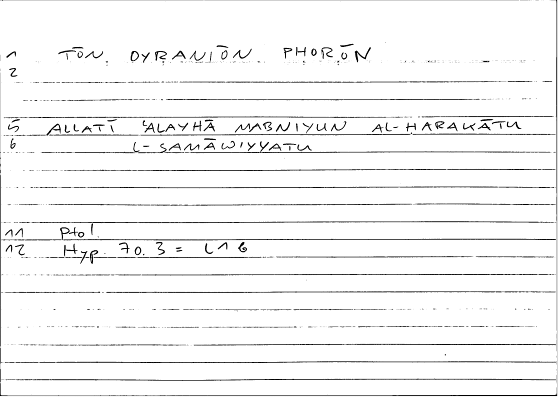 1 TŌN OYRANIŌN PHORŌN
2
5 ALLATĪ ʿALAYHĀ MABNIYUN AL-HARAKĀTU
6 L-SAMĀWIYYATU
11 Ptol.
12 Hyp. 70.3 = L16